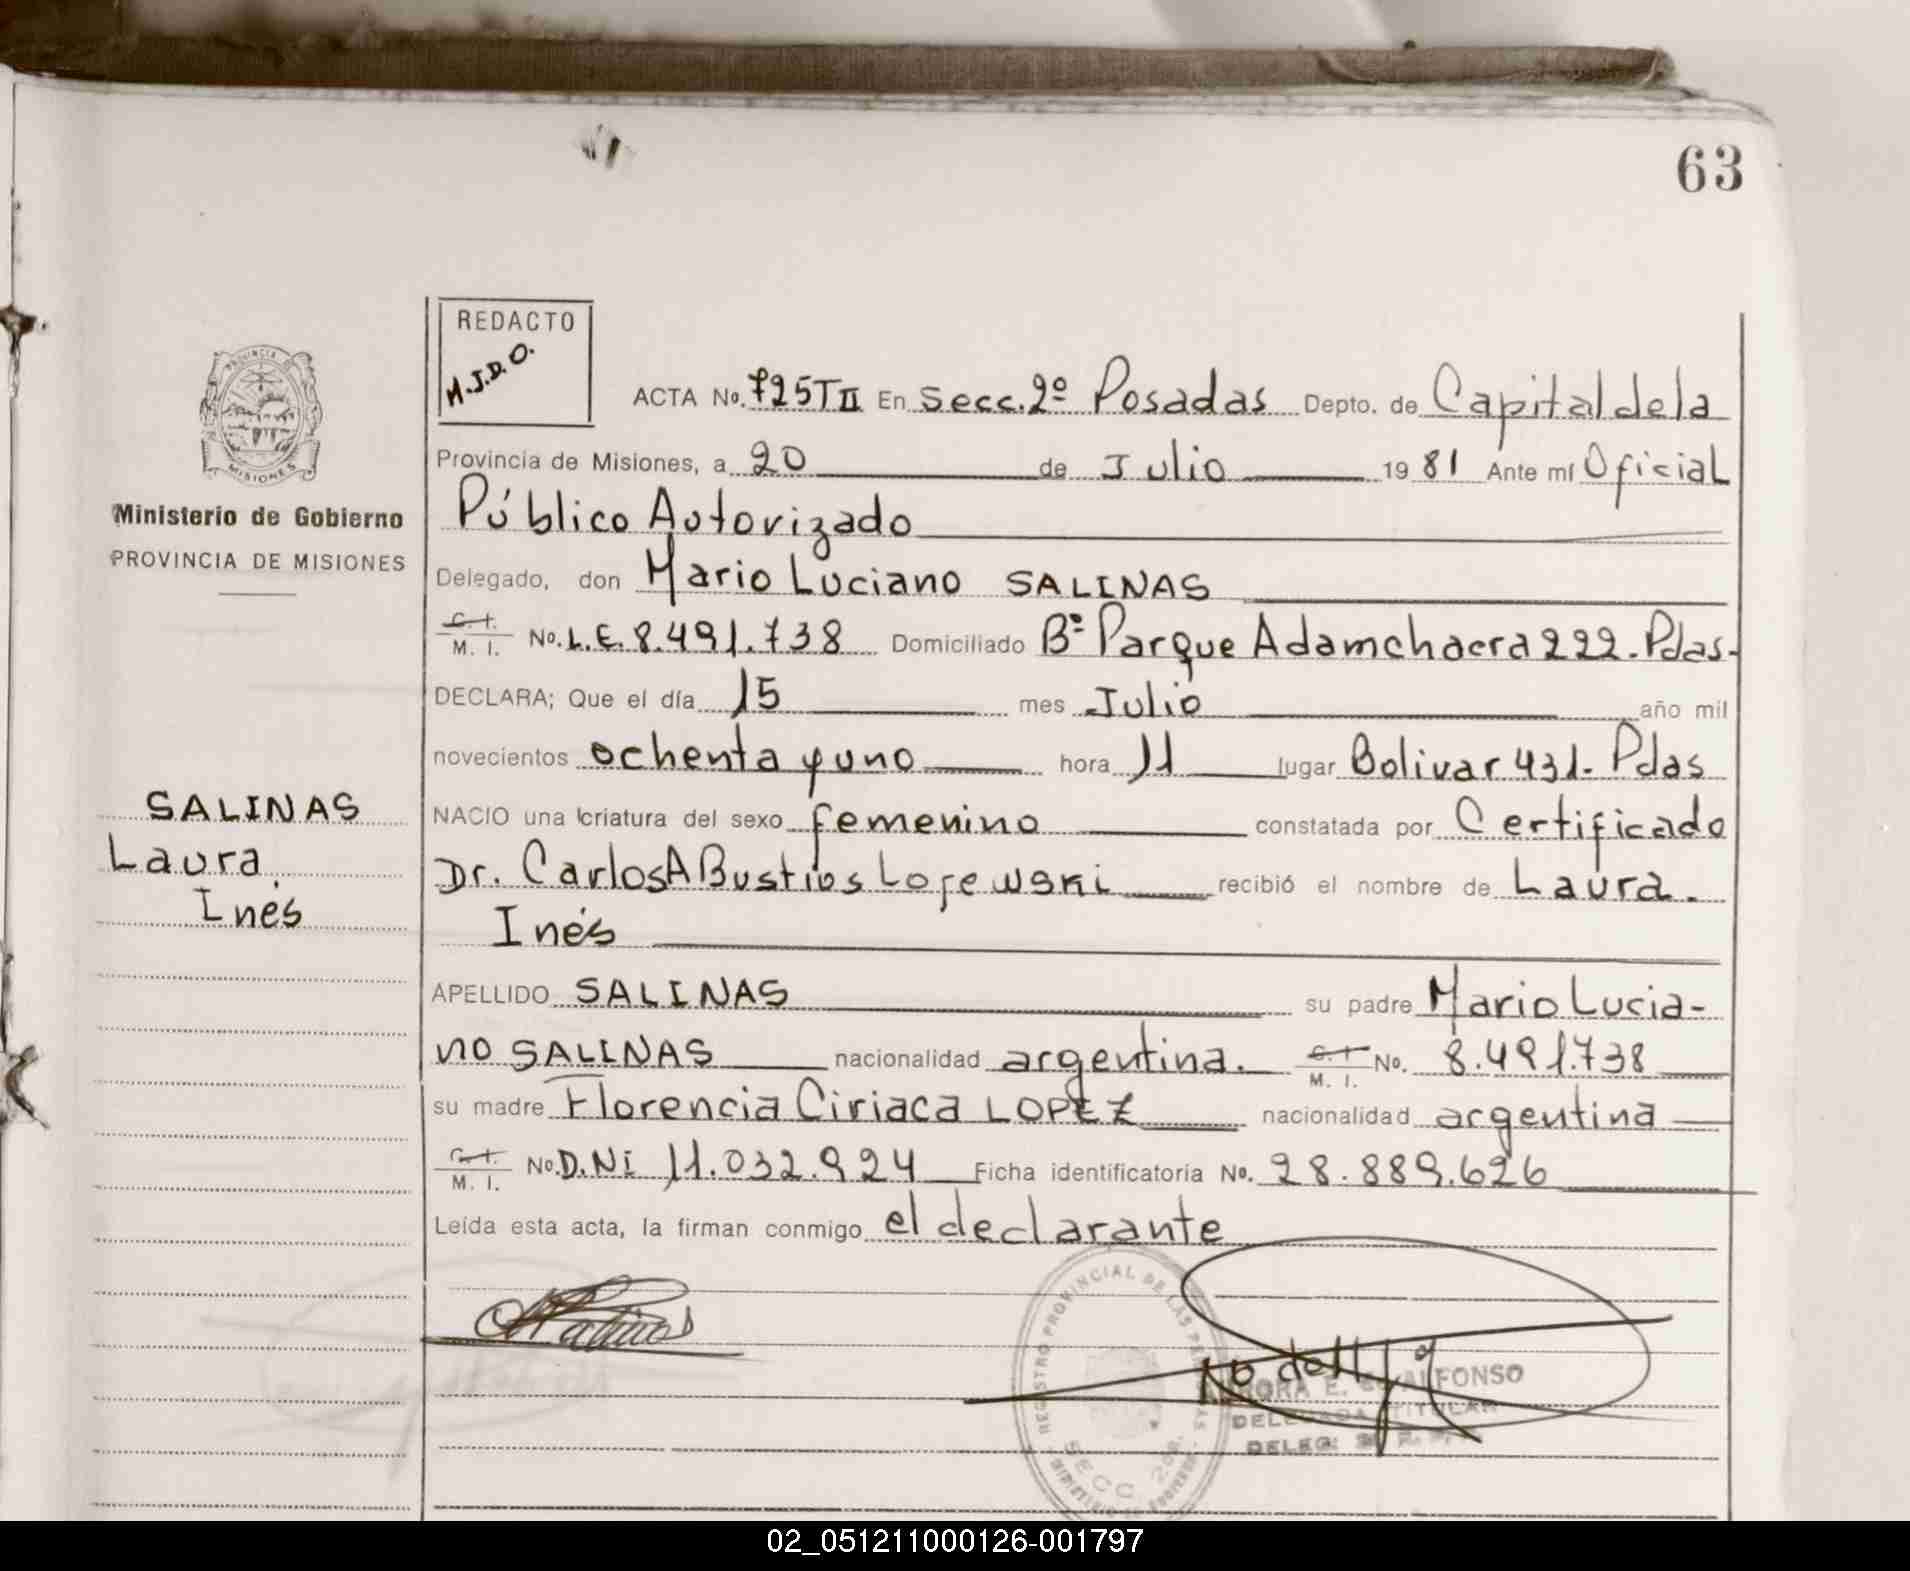 63
REDACTO
M.J.D.O.
ACTA No. 725 T II En Secc. 2º Posadas Depto. de Capital de la
Provincia de Misiones, a 20 de Julio 1981 Ante mí Oficial
Público Autorizado
Delegado, don Mario Luciano SALINAS
C. I. M. I. No. L.E. 8.491.738 Domiciliado Bº Parque Adamchaera 222. Pdas.
DECLARA; Que el día 15 mes Julio año mil
novecientos ochenta y uno hora 11 lugar Bolivar 431. Pdas
NACIO una criatura del sexo femenino constatada por Certificado
Dr. Carlos A Bustios recibió el nombre de Laura
Inés
APELLIDO SALINAS su padre Mario Lucia-
no SALINAS nacionalidad argentina. C. I. M. I. No. 8.491.738
su madre Florencia Ciriaca LOPEZ nacionalidad argentina
C. I. M. I. No. D.Ni 11.032.924 Ficha identificatoria No. 28.889.626
Leída esta acta, la firman conmigo el declarante
PROVINCIA DE
MISIONES
Ministerio de Gobierno
PROVINCIA DE MISIONES
SALINAS
Laura
Inés
REGISTRO PROVINCIAL DE LAS
SECC 2da.
E. ALFONSO
DELEGADA TITULAR
DELEG:
02_051211000126-001797